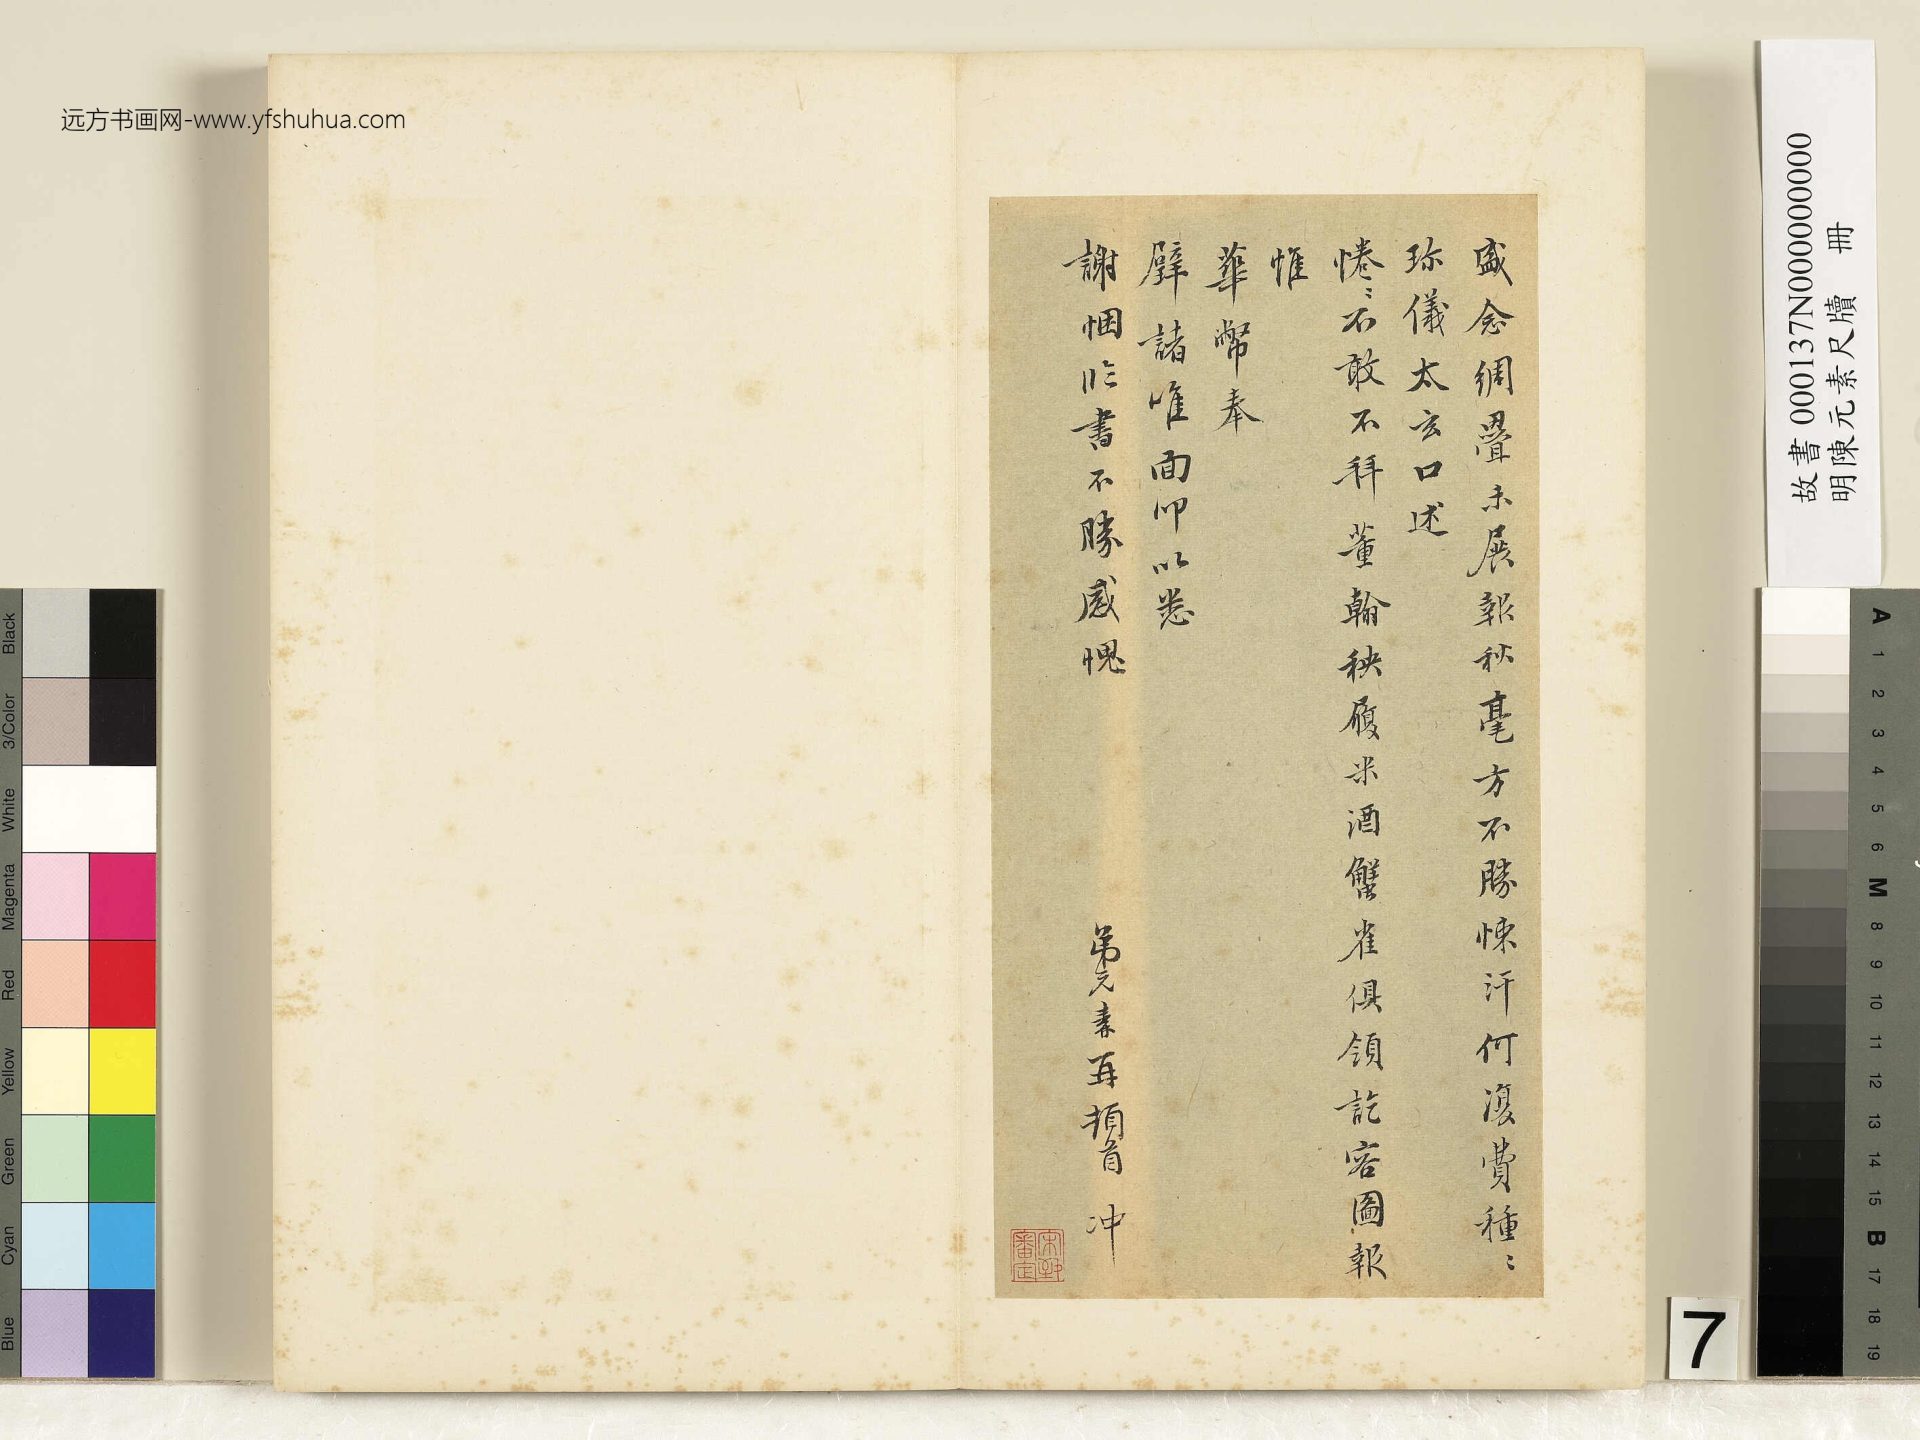 远方书画网-www.yfshuhua.com
盛念綢疊未展報秋毫方不勝悚汗何複費種〻
珎儀太玄口述
惓〻不敢不拜董翰秧履米酒蟹雀俱領訖容圖報
惟
華幣奉
璧諸唯面叩以悉
謝悃臨書不勝感愧
弟元素再頓首 冲
故書 000137N000000000
明陳元素尺牘 冊
7
Black
3/Color
White
Magenta
Red
Yellow
Green
Cyan
Blue
A
1
2
3
4
5
6
M
8
9
10
11
12
13
14
15
B
17
18
19